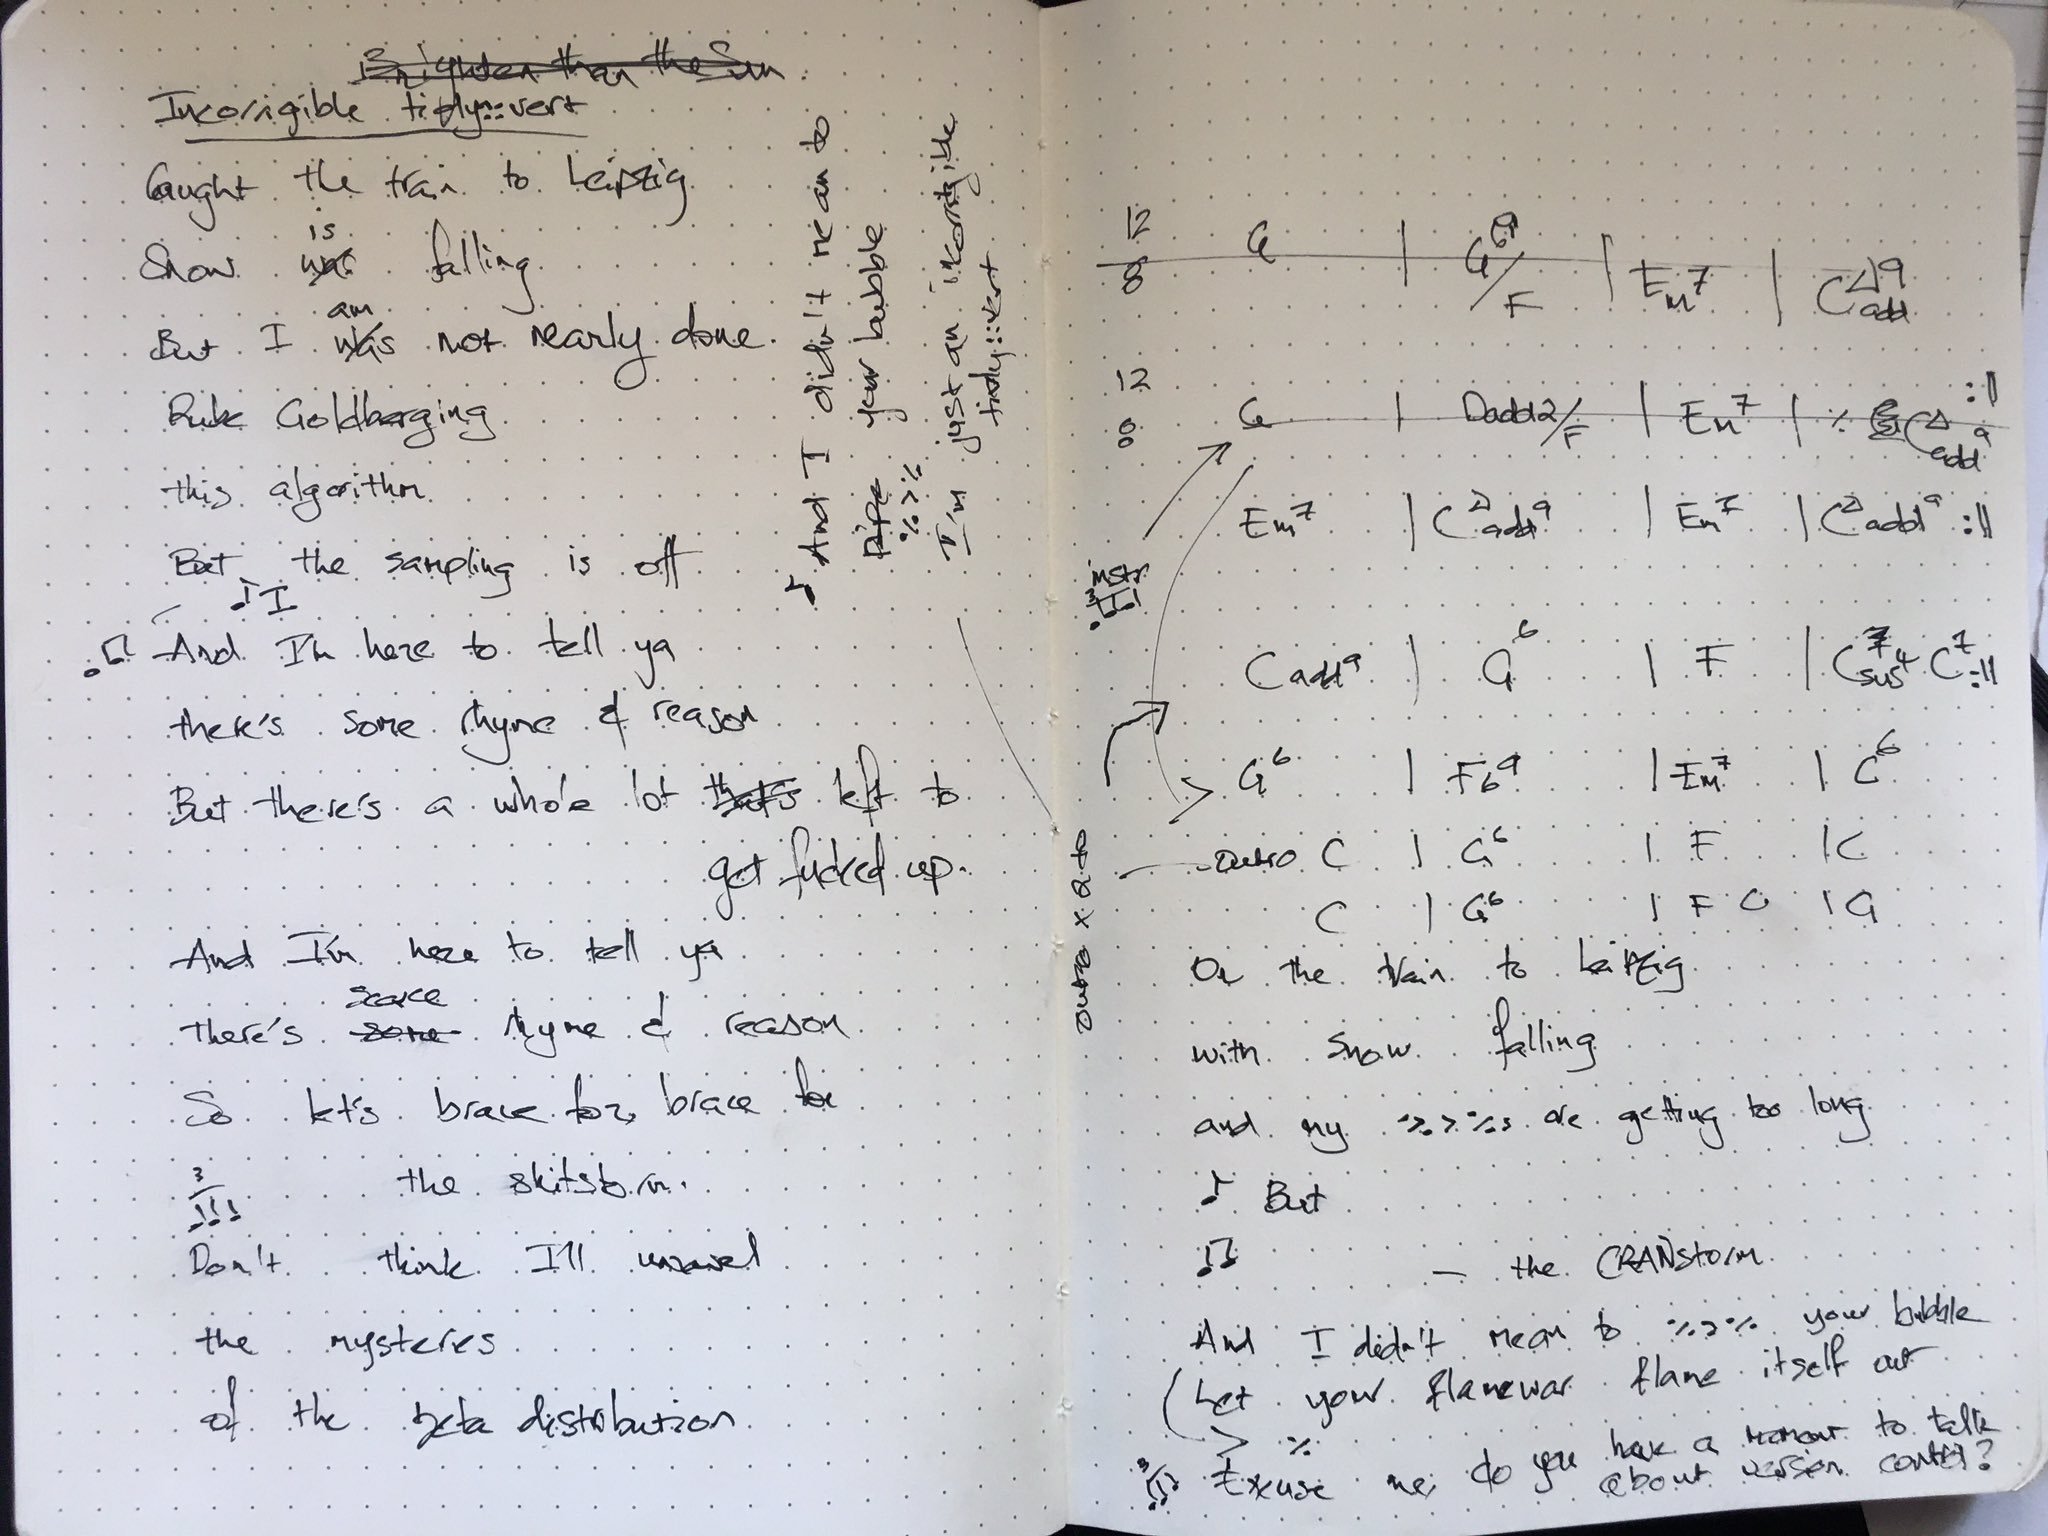 Brighter than the Sun
Incorrigible tidy::vert
Caught the train to Leipzig
is
Snow was falling
am
But I was not nearly done.
Rube Goldberging
this algorithm
But the sampling is off
I
And I'm here to tell ya
there's some rhyme & reason
But there's a whole lot that's left to
get fucked up.
And I'm here to tell ya
scarce
there's some rhyme & reason
So let's brace for, brace for
3
the shitstorm.
Don't think I'll unravel
the mysteries
of the beta distribution
And I didn't mean to
Pipe your bubble
%>%
I'm just an incorrigible
tidy:::vert
12
8 G | G69/F | Em7 | CΔ9 add
12
8 G | Dadd2/F | Em7 | % CΔ add9 :||
Em7 | CΔ add9 | Em7 | CΔ add9 :||
instr
3
C add9 | G6 | F | C7sus4 C7 :||
G6 | F69 | Em7 | C6
outro x 2 to
outro C | G6 | F | C
C | G6 | F C | G
On the train to Leipzig
with snow falling
and my %>%s are getting too long
But
— the CRANstorm
And I didn't mean to %>% your bubble
Let your flamewar flame itself out
> %
3
Excuse me, do you have a moment to talk
about version control?